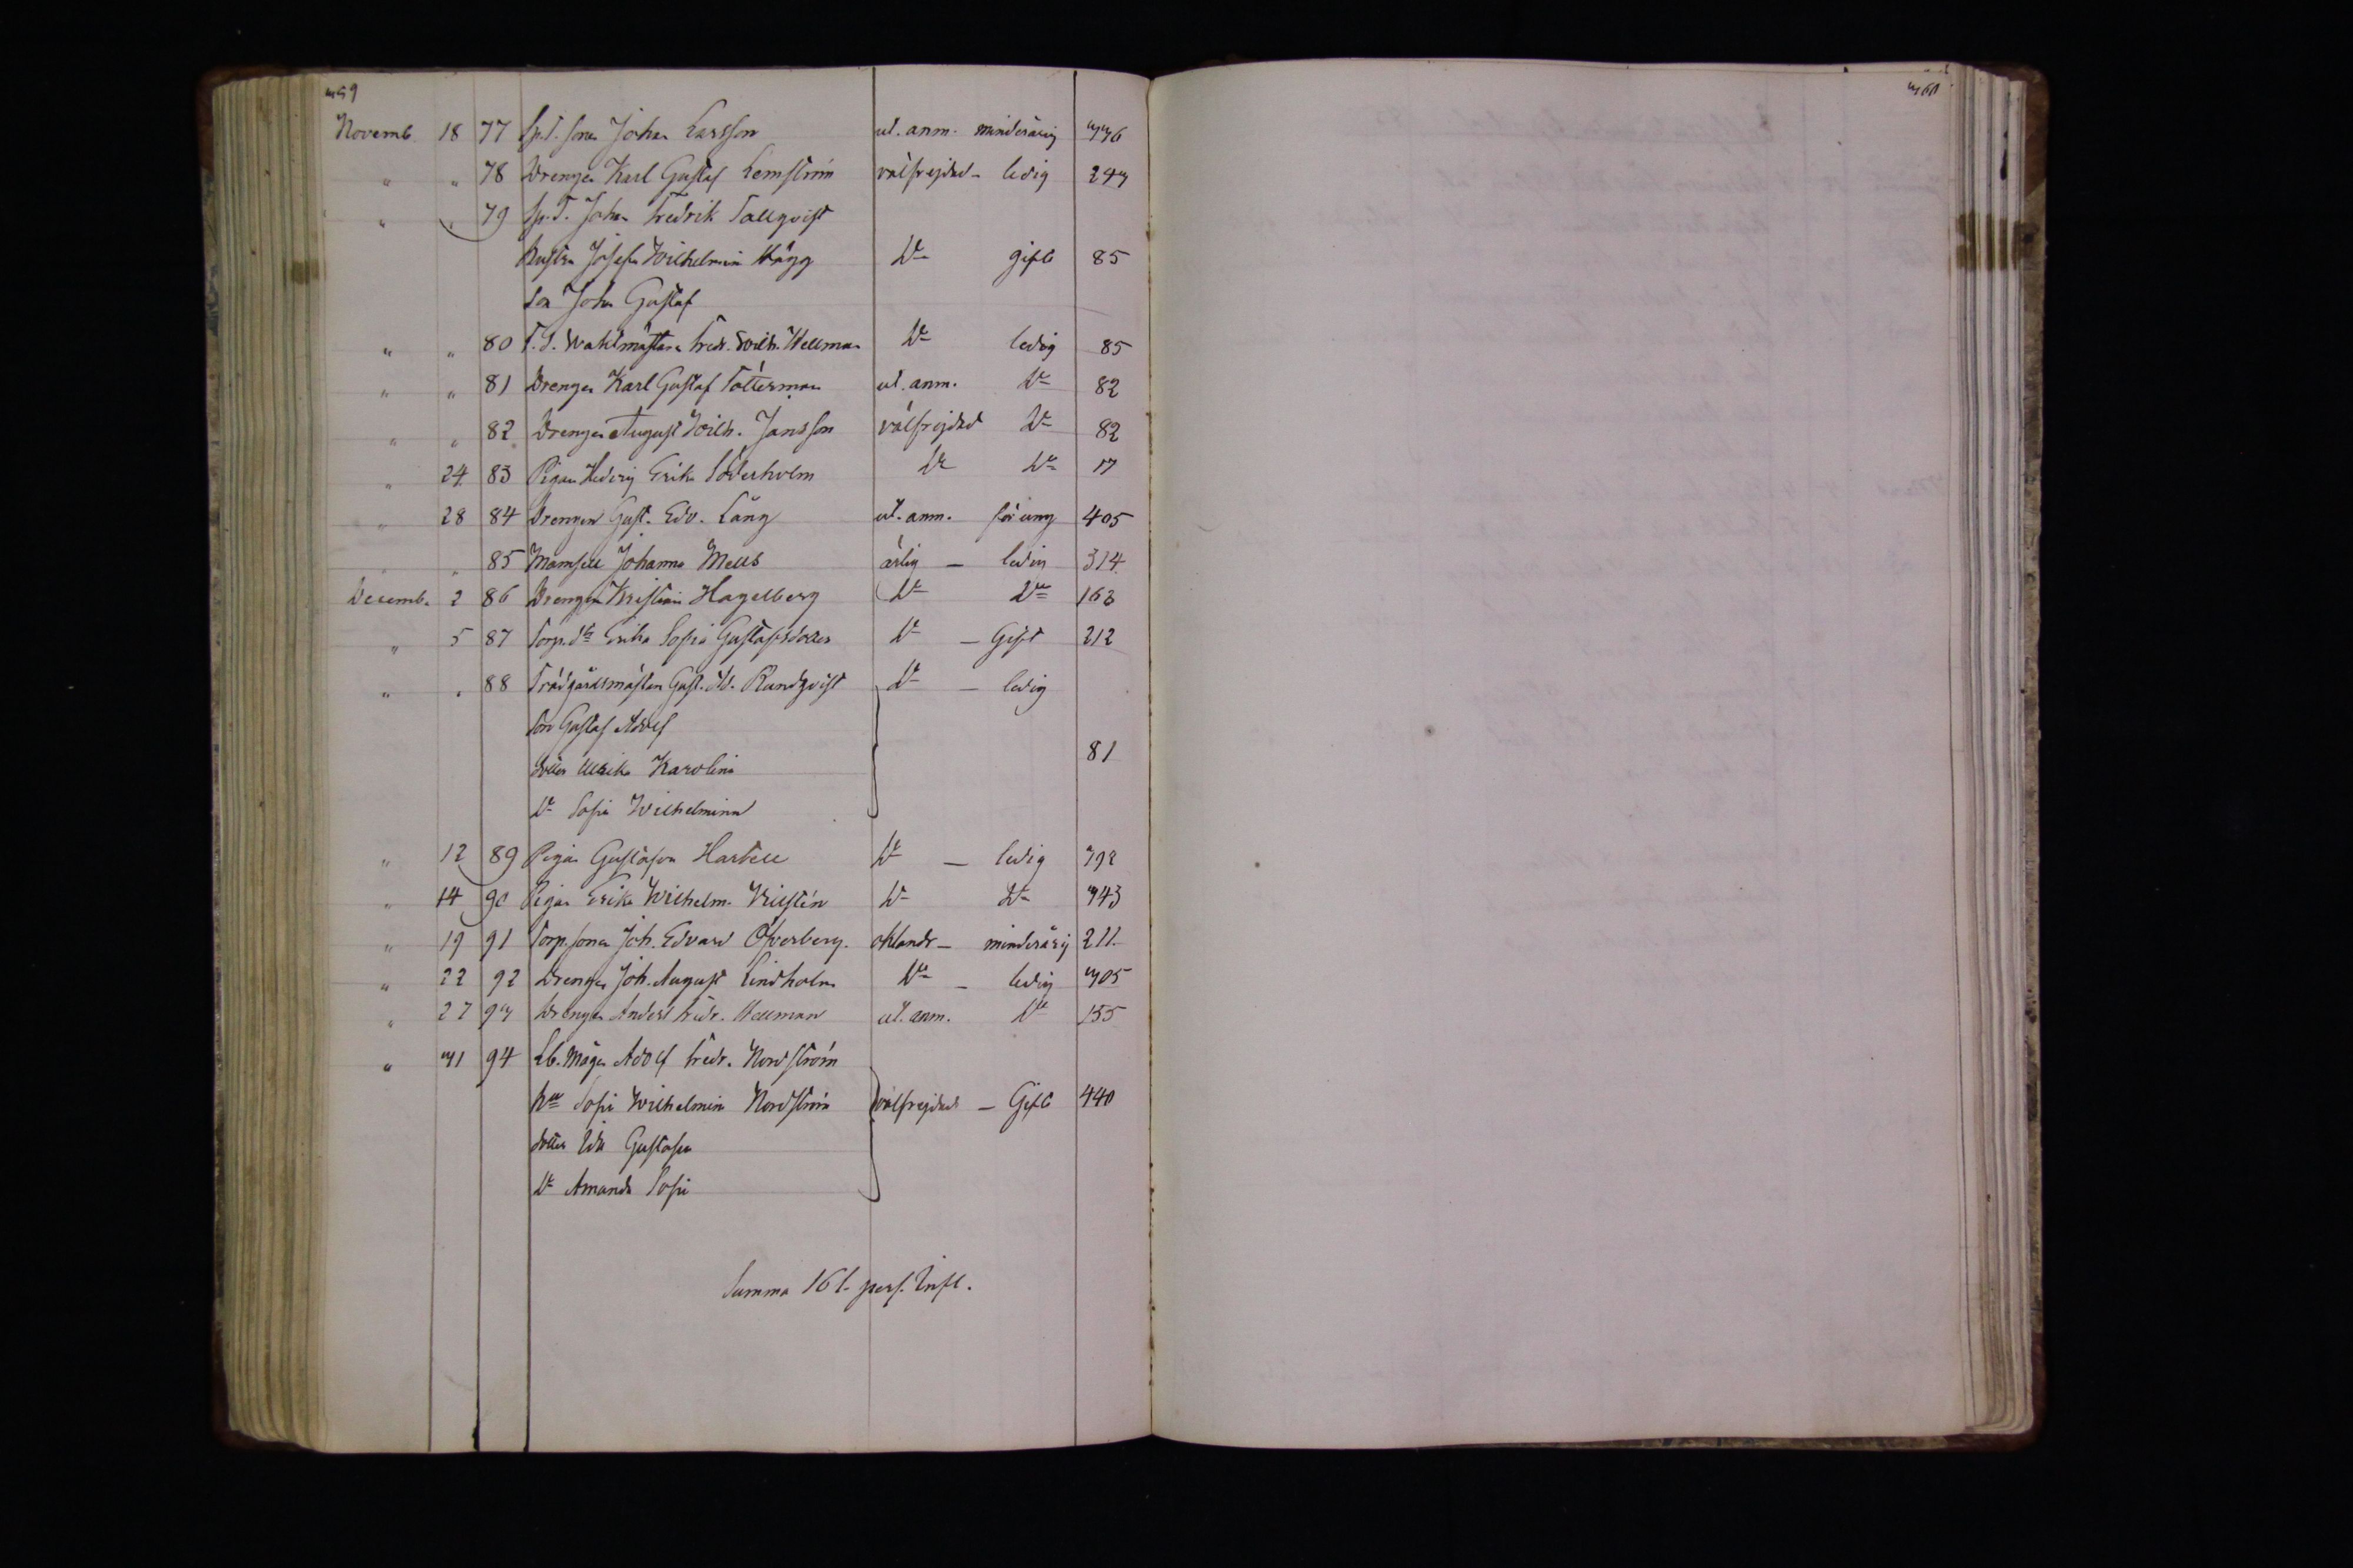 359
360
Novemb. 18 77 Sp.T. sonen Johan Larsson ut. anm. minderårig 336
" " 78 Drengen Karl Gustaf Lemström välfrejdad - ledig 243
" " 79 Sp.T. Johan Fredrik Tallqvist
Hustrun Josefa Wilhelmina Hägg Do gift 85
Son Johan Gustaf
" " 80 Waktmästaren Fredr. Wilh. Hellman Do ledig 85
" " 81 Drengen Karl Gustaf Totterman ut. anm. Do 82
" " 82 Drengen August Wilh. Jansson välfrejdad Do 82
" 24 83 Pigan Hedvig Erika Söderholm Do Do 17
" 28 84 Drengen Gust. Edv. Lång ut. anm. för ung 405
" " 85 Mamsell Johanna Mells ärlig - ledig 314
Decemb. 2 86 Drengen Kristian Hagelberg Do Do 163
" 5 87 Torp. Erika Sofia Gustafsdotter Do - Gift 212
" " 88 Trädgårdsmästaren Gust. Ad. Rundqvist Do - ledig
Son Gustaf Adolf
dotter Ulrika Karolina 81
Do Sofia Wilhelmina
" 12 89 Pigan Gustafva Hartell Do - ledig 392
" 14 90 Pigan Erika Wilhelm. Do Do 343
" 19 91 Torp.sonen Joh. Edvard Öfverberg. oklandr - minderårig 211
" 22 92 Drengen Joh. August Lindholm Do - ledig 305
" 27 93 Drengen Anders Fredr. Hellman ut. anm. Do 155
" 31 94 Adolf Fredr. Nordström
Hu Sofia Wilhelmina Nordström välfrejdade - Gift 440
dotter Ida Gustafva
Do Amanda Sofia
Summa 161 pers. Infl.